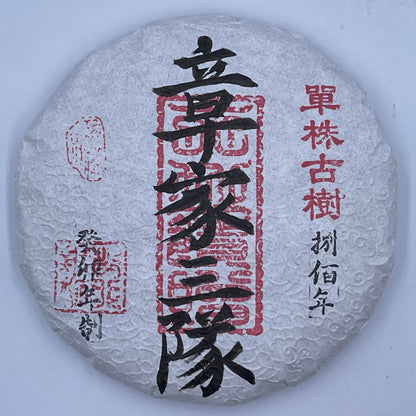 單株古樹
捌佰年
章家三隊
癸卯年制